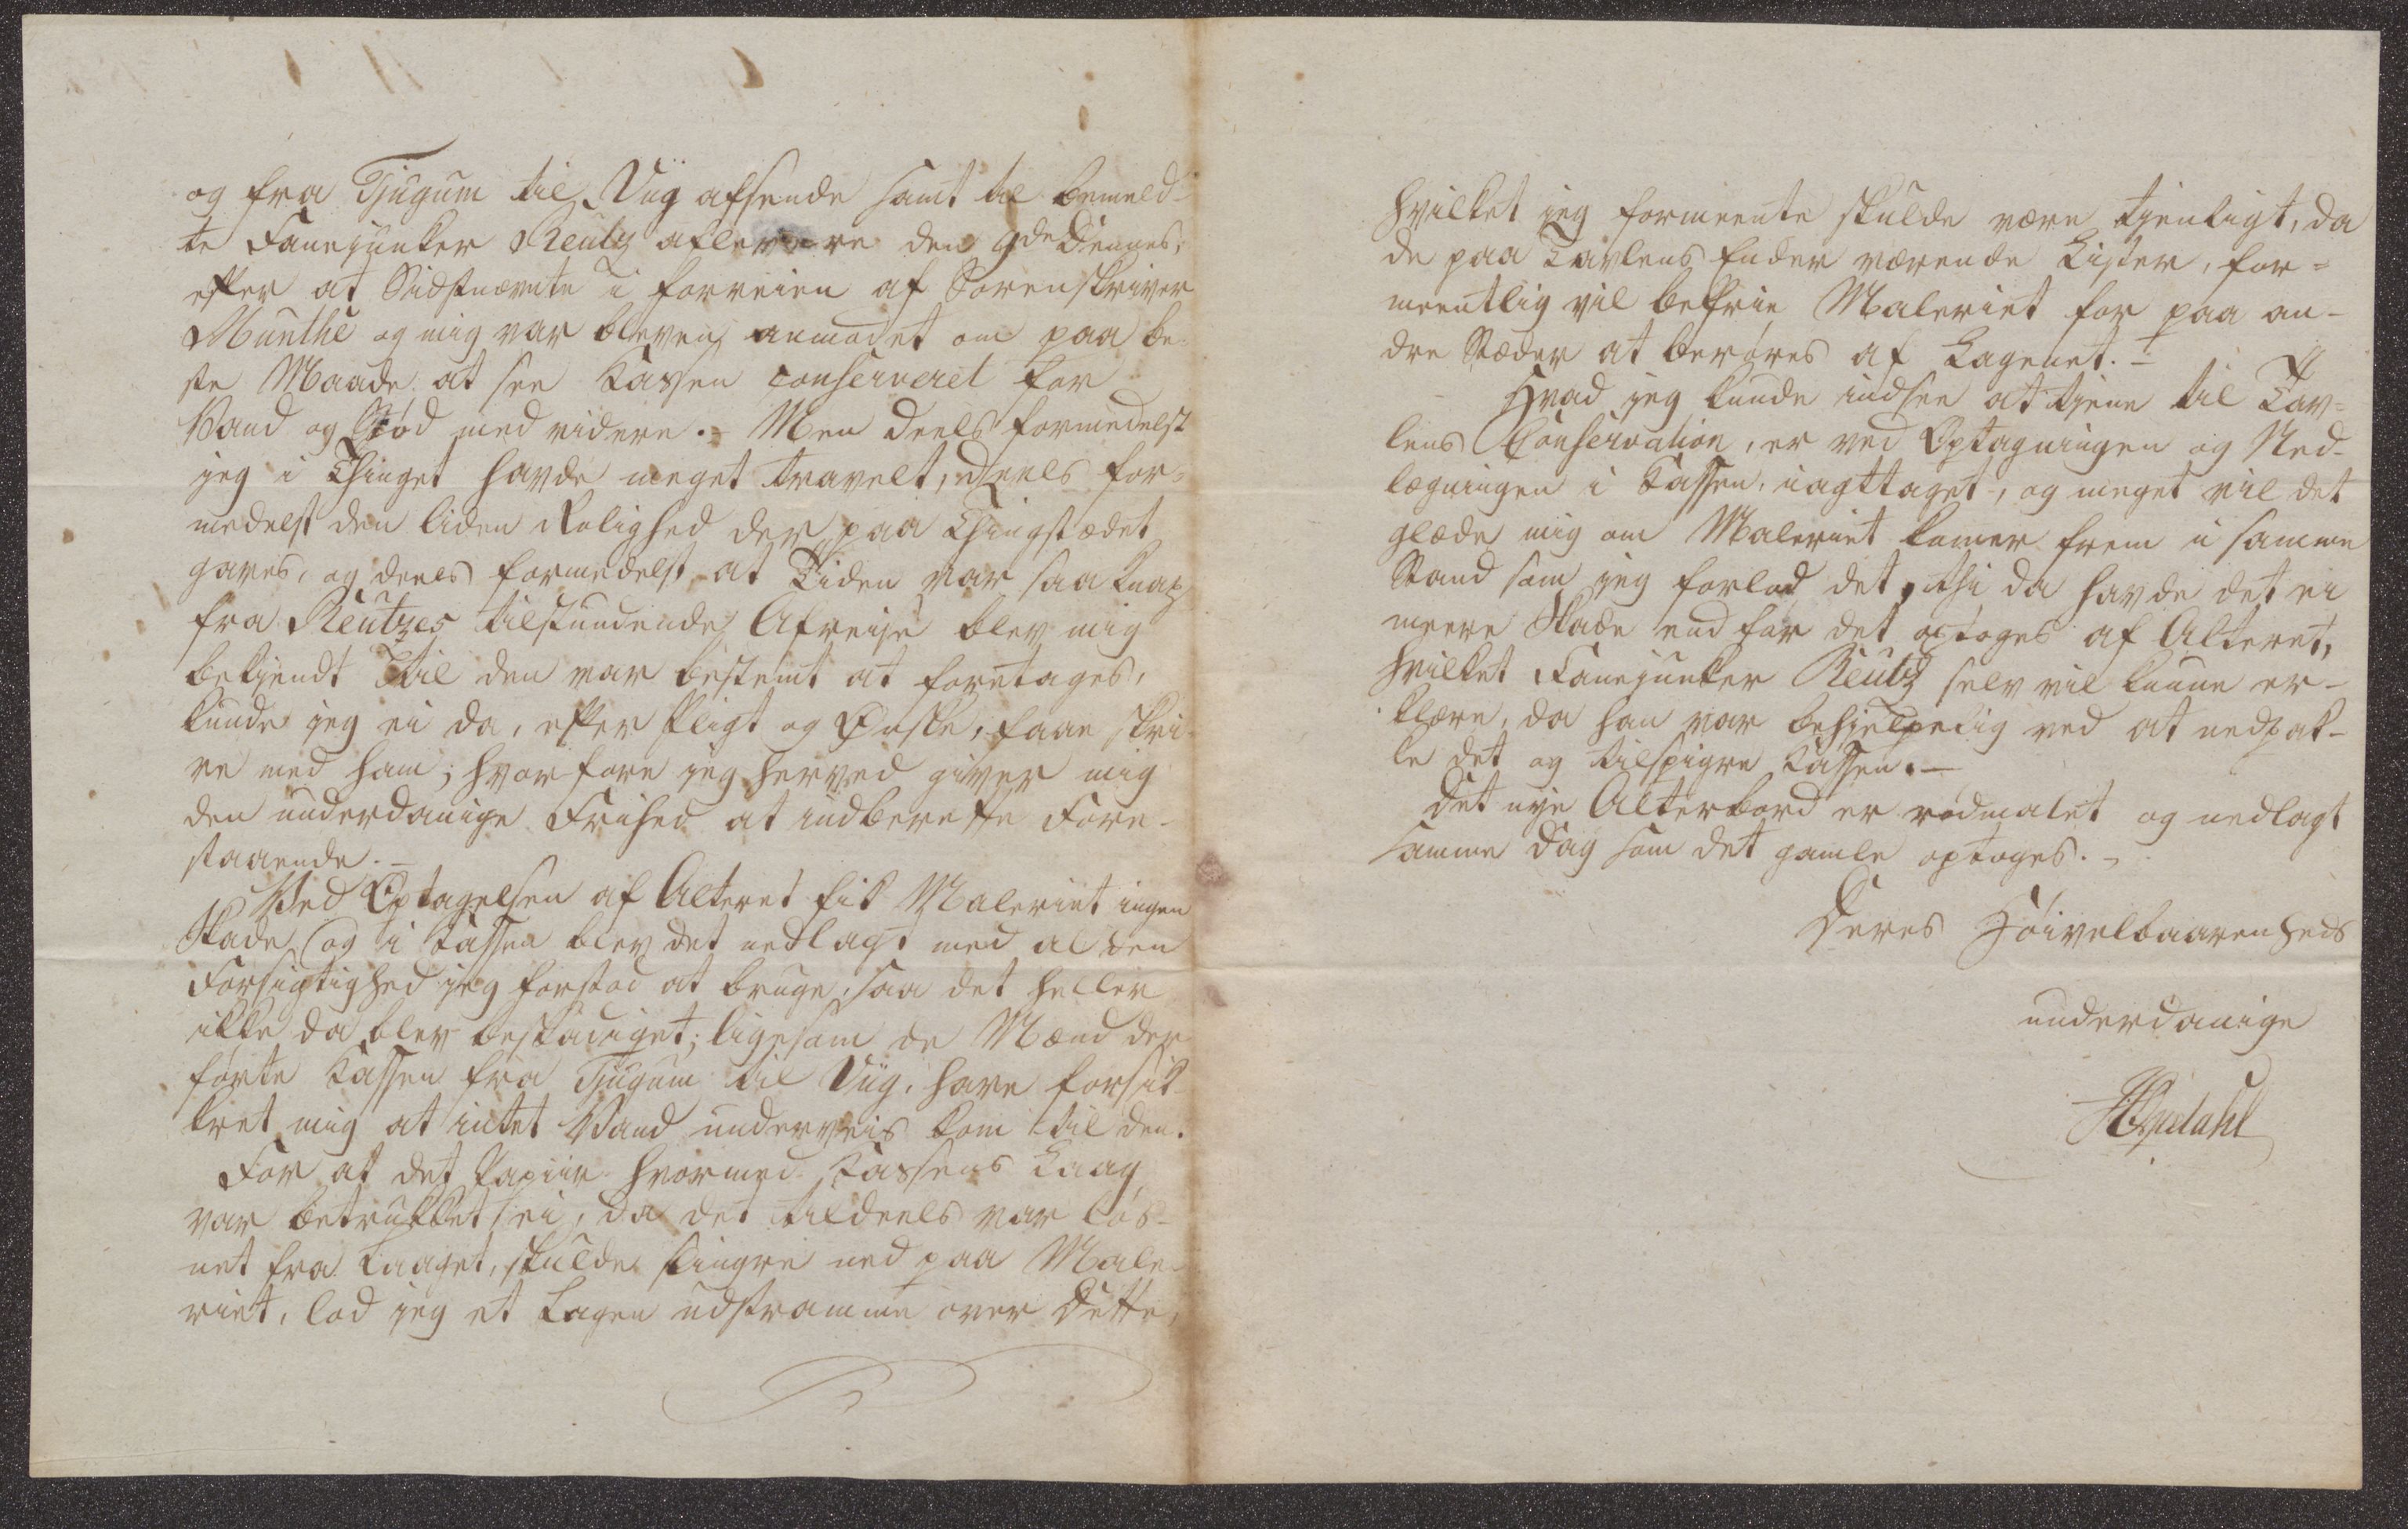 og fra Tjugum til Viig afsende samt til bemeld-
te Fanejunker Reutz aflevere den 9de dennes,
efter at Sidstnævnte i forveien af Sorenskriver
Munthe og mig var bleven anmodet om paa be-
ste Maade at see Kassen conserveret for
Vand og Stød med videre. - Men deels formedelst
jeg i Thinget havde meget travelt, deels for-
medelst den liden Rolighed der paa Thingstædet
gaves, og deels formedelst at Tiden var saa knap
fra Reutzes tilstundende Afreise blev mig
bekjendt til den var bestemt at foretages,
kunde jeg ei da, efter Pligt og Ønske, faae skri-
ve med ham; hvorfore jeg herved giver mig
den underdanige Frihed at indberette Fore-
staaende. -
Ved Optagelsen af Alteret fik Maleriet ingen
Skade, og i Kassen blev det nedlagt med al den
Forsigtighed jeg forstod at bruge, saa det heller
ikke da blev beskadiget; ligesom de Mænd der
førte Kassen fra Tjugum til Viig, have forsik-
kret mig at intet Vand underveis kom til den.
For at det Papiir hvormed Kassens Laag
var betrukket ei, da det tildeels var løs-
net fra Laaget, skulde slingre ned paa Male-
riet, lod jeg et Lagen udstramme over Dette,
hvilket jeg formeente skulde være tjenligt, da
de paa Tavlens Ender værende Lister, for-
meentlig vil befrie Maleriet for paa an-
dre Stæder at berøres af Lagenet. -
Hvad jeg kunde indsee at tjene til Tav-
lens Conservation, er ved Optagningen og Ned-
lægningen i Kassen iagttaget, og meget vil det
glæde mig om Maleriet kommer frem i samme
Stand som jeg forlod det, thi da havde det ei
meere Skade end før det optoges af Alteret,
hvilket Fanejunker Reutz selv vil kunne er-
klære, da han var behjelpelig ved at nedpak-
ke det og tilspigre Kassen. -
Det nye Alterbord er rødmalet og nedlagt
samme Dag som det gamle optoges. -
Deres Høivelbaarenheds
underdanige